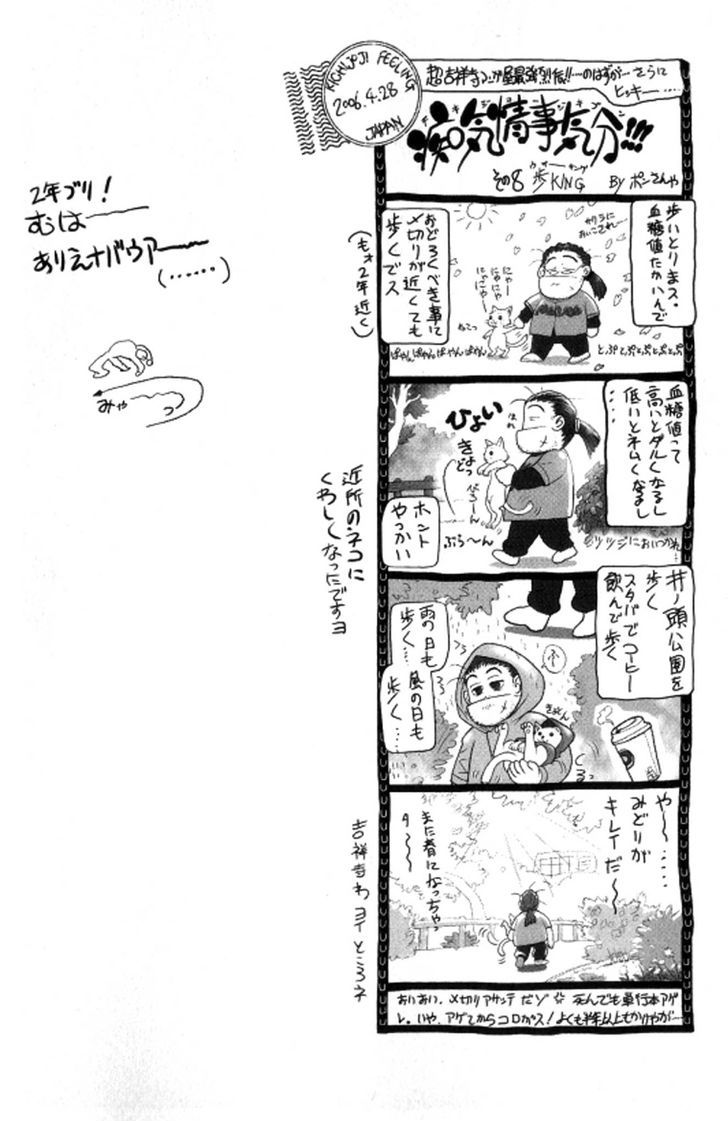 KICHIJOJI FEELING
2006.4.28
JAPAN
超吉祥寺マンガ屋最強烈伝!!…のはずが…さらに
ヒッキー……
病気情事気分!!!
その8 歩KING
ウォーキング
By ポンさんや
歩いとりまス・
血糖値たかいんで
サクラに
おいこてれ〜
おどろくべき事に
〆切りが近くても
歩くでス
にゃー
にゃにゃ
にゃごゃー
ねてっ
ぱやんぱやんぱやんぱやん
とぷとぷとぷとぷとぷ
(もォ2年近く)
血糖値って
高いとダルくなるし
低いとネムくなるし
……
ひょい
きょ
どっ
ぶら〜ん
ツツジにおいつかれ…
ホント
やっかい
近所のネコに
くわしくなったですヨ
井ノ頭公園を
歩く
スタバでコーヒー
飲んで歩く
雨の日も
歩く…
風の日も
歩く……
ふー
きゅん
や〜……
みどりが
キレイだ〜
また春になっちゃっ
タ〜〜
吉祥寺わヨイところネ
おいおい、〆切りアサッテだゾ 死んでも単行本アゲ
レ。いや、アゲてからコロがス!よくも半年以上もかりやが…
2年ブリ!
むは――
ありえナバウアー――
(……)
みゃ〜〜っ